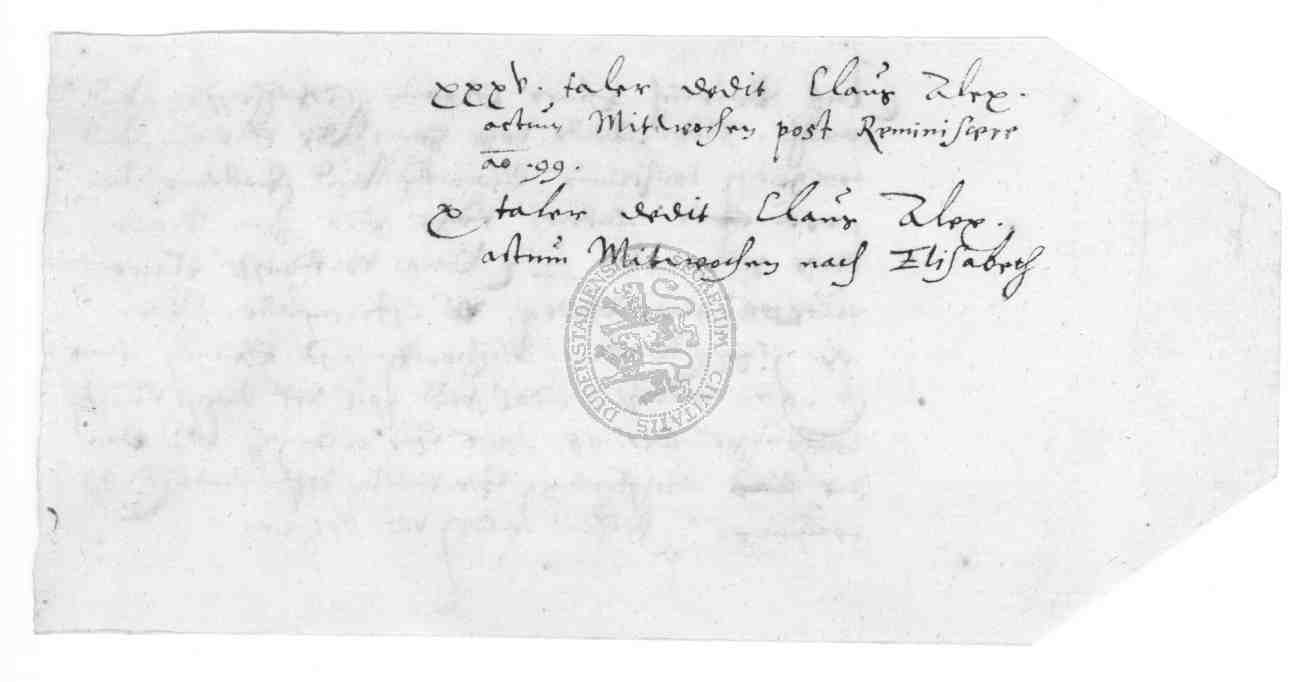 xxxv. taler dedit Claus Alex.
actum Mitwochen post Reminiscere
ao .99.
x taler dedit Claus Alex.
actum Mitwochen nach Elisabeth
SECRETUM CIVITATIS DUDERSTADIENSIS